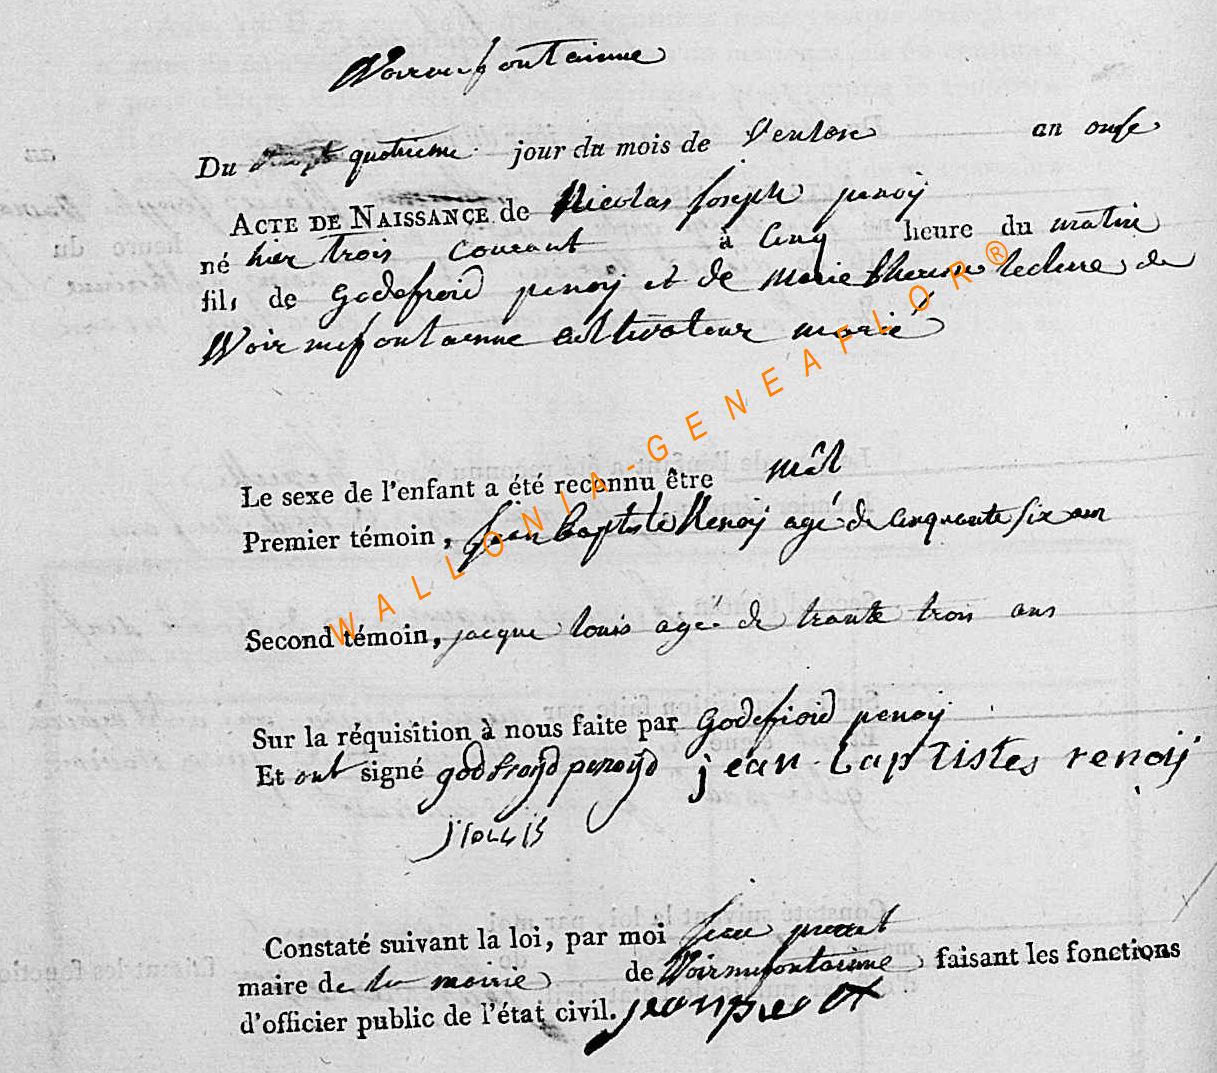 Voirnufontainne
Du quatrieme jour du mois de Ventose an onse
ACTE DE NAISSANCE de Nicolas Joseph penoÿ
né hier trois courant à Cinq heure du matin
fils de Godefroid penoÿ et de Marie therese leclere de
Woirnufontainne cultivateur marié
Le sexe de l'enfant a été reconnu être mâl
Premier témoin, jean baptiste Renoÿ agé de Cinquante six ans
Second témoin, jacque louis agé de trante trois ans
Sur la réquisition à nous faite par Godefroid penoÿ
Et ont signé godfroÿd penoÿd jean baptistes renoÿ
j louis
Constaté suivant la loi, par moi jean
maire de la mairie de Woirnufontainne faisant les fonctions
d'officier public de l'état civil. jean
WALLONIA-GENEAFLOR®